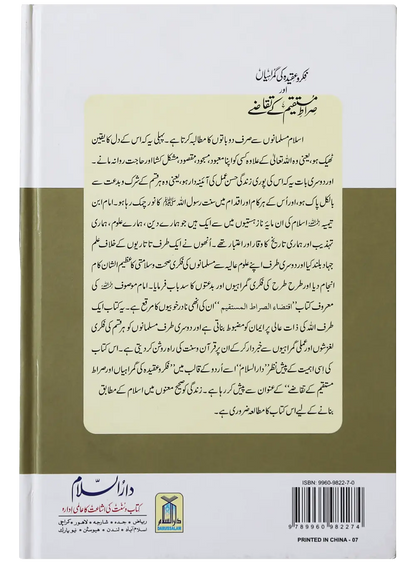 فکر و عقیدہ کی گمراہیاں
اور
صراطِ مستقیم کے تقاضے
اسلام مسلمانوں سے صرف دو باتوں کا مطالبہ کرتا ہے۔ پہلی یہ کہ اس کے دل کا یقین
ٹھیک ہو، یعنی وہ اللہ تعالیٰ کے علاوہ کسی کو اپنا معبود، مسجود، مقصود، مشکل کشا اور حاجت روا نہ مانے۔
اور دوسری بات یہ کہ اس کی پوری زندگی حسن عمل کی آئینہ دار ہو، یعنی وہ ہر قسم کے شرک و بدعت سے
بالکل پاک ہو، اور اُس کے ہر کام اور اقدام میں سنت رسول اللہ ﷺ کا نور چمک رہا ہو۔ امام ابن
تیمیہ رحمہ اللہ اسلام کی ان مایۂ ناز ہستیوں میں سے ایک ہیں جو ہمارے دین، ہمارے علوم، ہماری
تہذیب اور ہماری تاریخ کا وقار اور اعتبار تھے۔ اُنھوں نے ایک طرف تاتاریوں کے خلاف علم
جہاد بلند کیا اور دوسری طرف اپنے علوم عالیہ سے مسلمانوں کی فکری صحت و سلامتی کا عظیم الشان کام
انجام دیا اور طرح طرح کی فکری گمراہیوں اور بدعتوں کا سدباب فرمایا۔ امام موصوف رحمہ اللہ کی
معروف کتاب "اقتضاء الصراط المستقیم" ان کی انھی نادر خوبیوں کا مرقع ہے۔ یہ کتاب ایک
طرف اللہ کی ذات عالی پر ایمان کو مضبوط بناتی ہے اور دوسری طرف مسلمانوں کو ہر قسم کی فکری
لغزشوں اور عملی گمراہیوں سے خبردار کر کے ان پر قرآن و سنت کی راہ روشن کر دیتی ہے۔ اس کتاب
کی اسی اہمیت کے پیش نظر "دارالسلام" اسے اُردو کے قالب میں "فکر و عقیدہ کی گمراہیاں اور صراط
مستقیم کے تقاضے" کے عنوان سے پیش کر رہا ہے۔ زندگی کو صحیح معنوں میں اسلام کے مطابق
بنانے کے لیے اس کتاب کا مطالعہ ضروری ہے۔
دارُالسلام
کتاب و سنت کی اشاعت کا عالمی ادارہ
ریاض • جدہ • شارجہ • لاہور • کراچی
اسلام آباد • لندن • ہیوسٹن • نیو یارک
دارالسلام
DARUSSALAM
ISBN: 9960-9822-7-0
9 789960 982274
PRINTED IN CHINA - 07